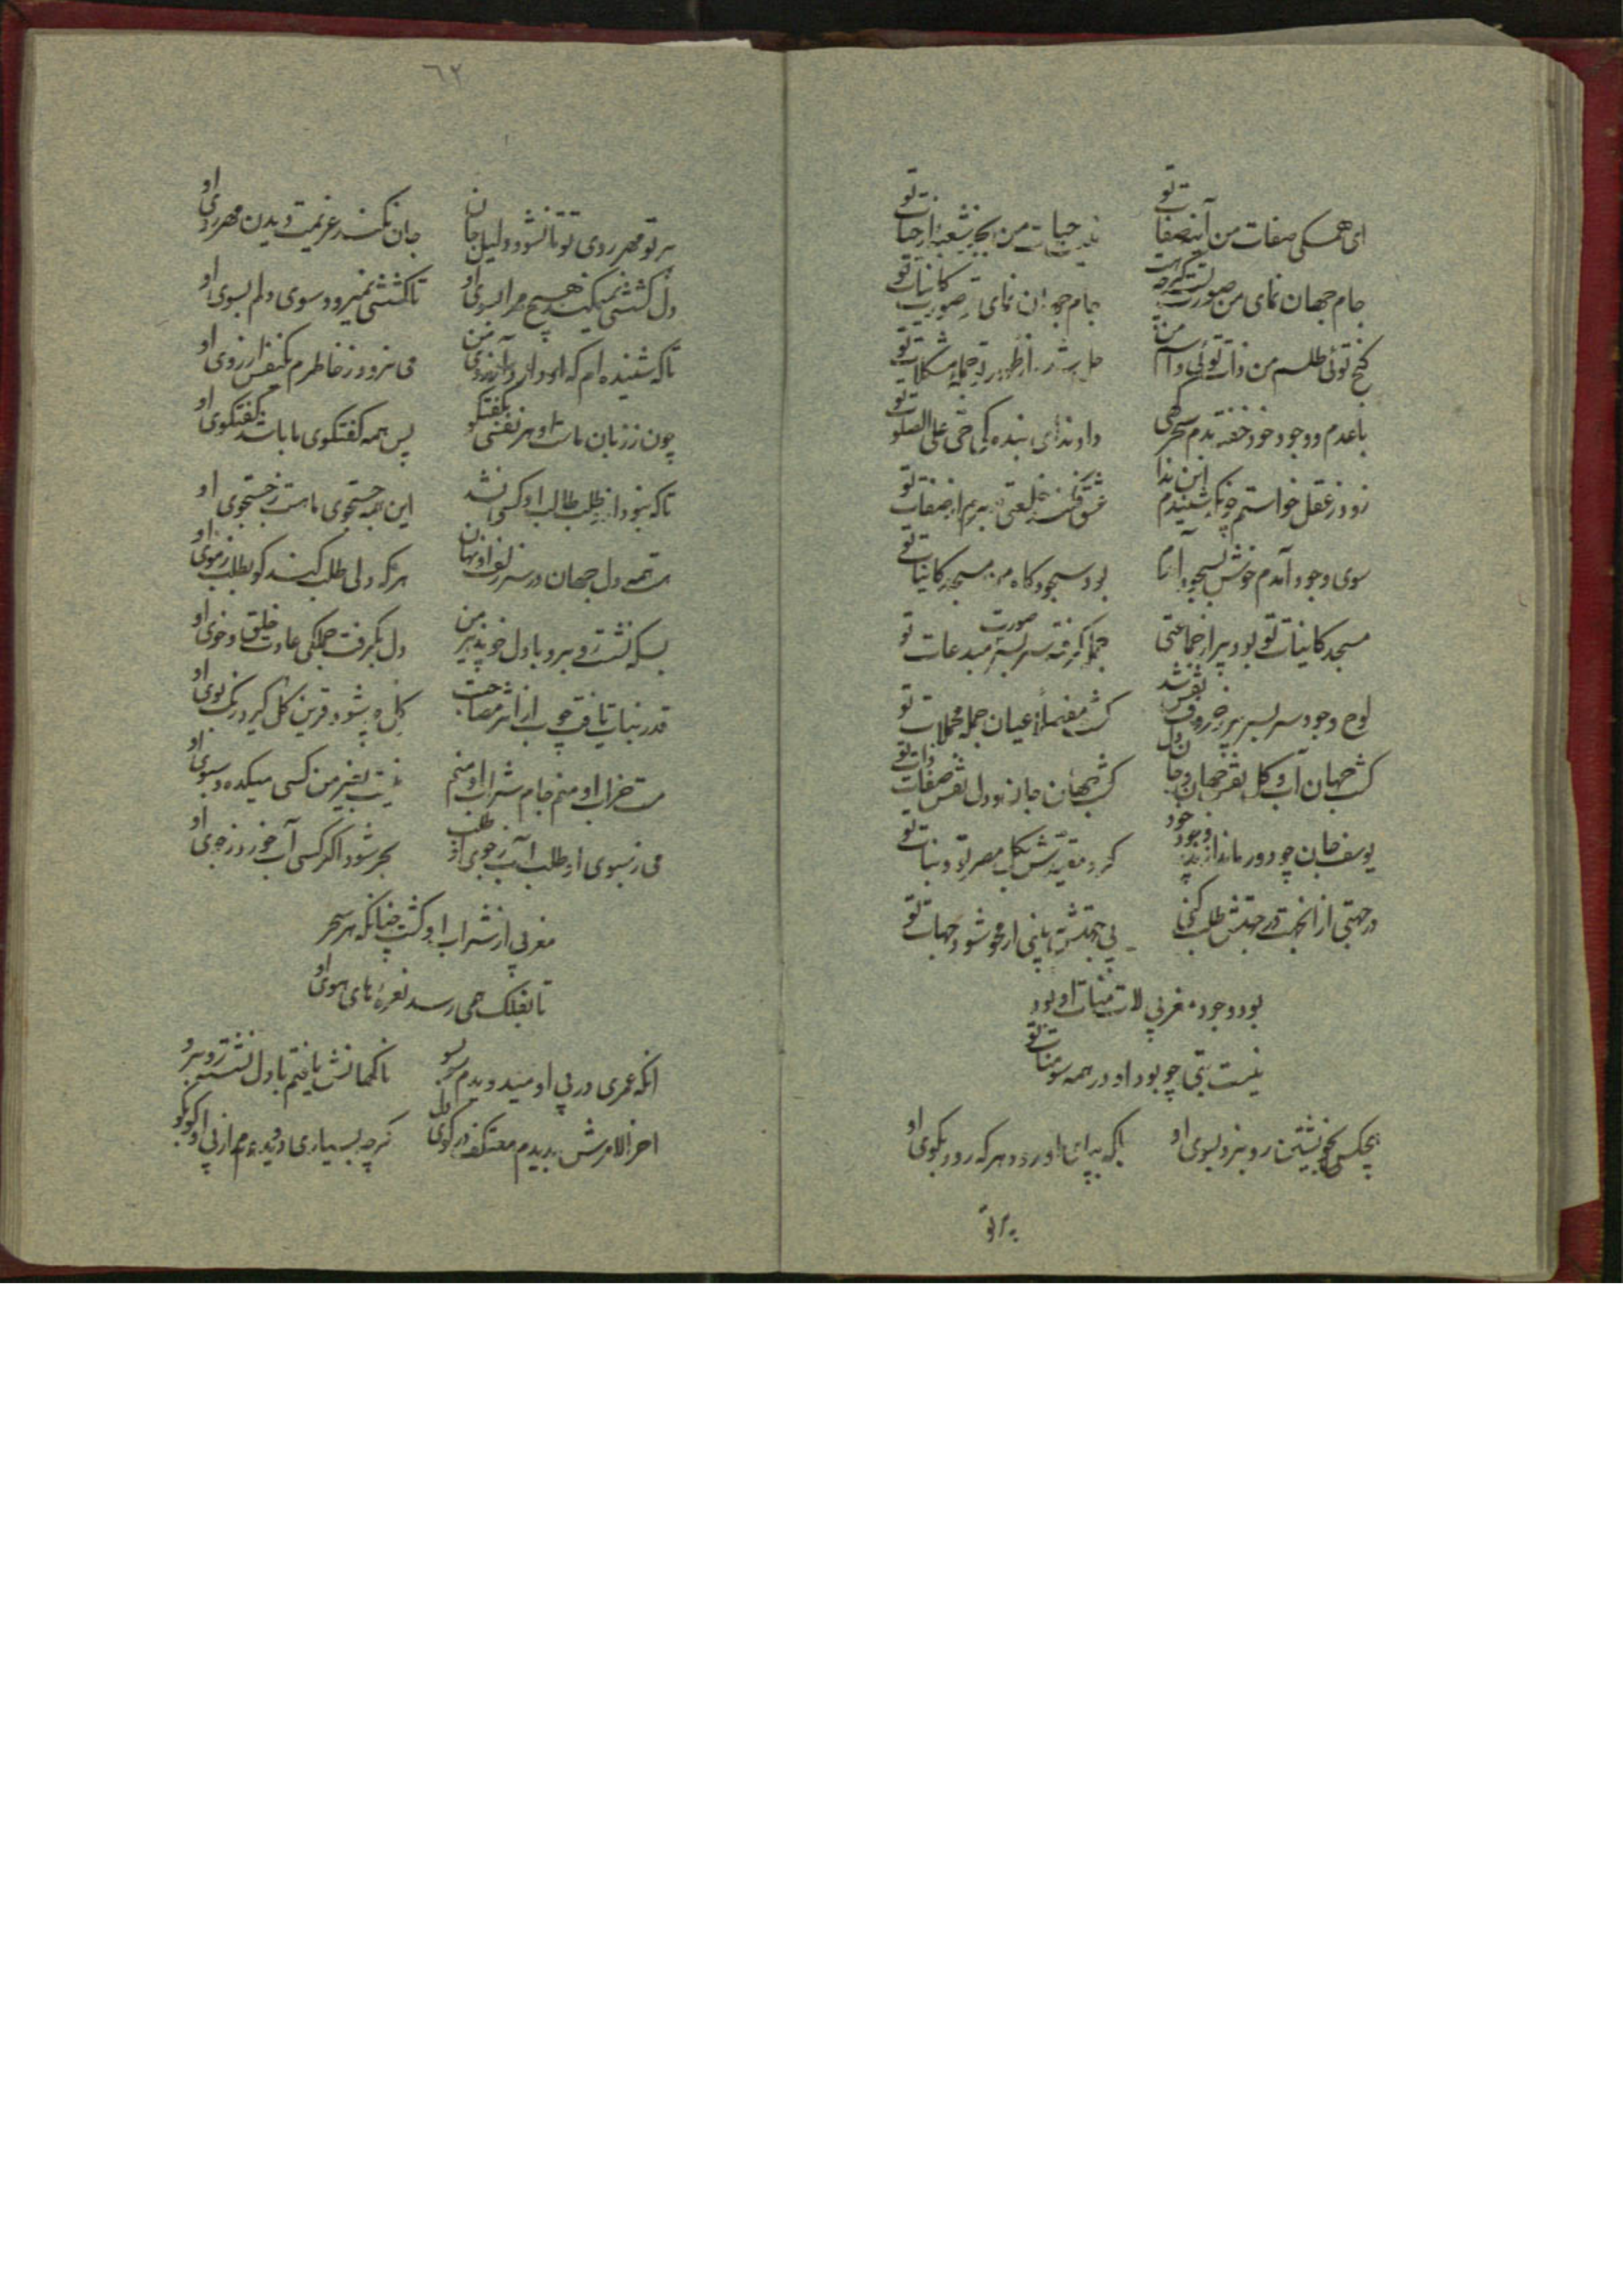 ای همگی صفات من آینه صفات تو
نیست حیات من بجز شعبه از حیات تو
جام جهان نمای من صورت تست گرچه هست
جام جهان نمای تو صورت کاینات تو
گنج توئی طلسم من ذات توئی و اسم من
حل شد از ظهور تو جمله مشکلات تو
باعدم و وجود خود خفته بدم سحرگهی
داد ندای بنده کی حی علی الصلوة تو
زود ز عقل خواستم چونکه شنیدم این ندا
عشق فکند خلعتی ببرم از صفات تو
سوی وجود آمدم خوش بسجود آمدم
بود سجودگاه من مسجد کاینات تو
مسجد کاینات تو بود پر از جماعتی
جمله گرفته سر بسر صورت مبدعات تو
لوح وجود سر بسر پر ز حروف نقش شد
گشت مفصلا عیان جمله مجملات تو
گشت جهان آب و گل نقش جهان جان و دل
گشت جهان جان و دل نقش صفات ذات تو
یوسف جان چو دور ماند از پدر وجود خود
کرد مقیدش بگل مصر تو و نبات تو
در جهتی از انجهت در جهتش طلب کنی
بی جهتش ببینی ار محو شود جهات تو
بود وجود مغربی لات منات او بود
نیست بتی چو بود او در همه سومنات تو
هیچکس بخویشتن ره نبرد بسوی او
بلکه بپای او رود هر که رود بکوی او
پرتو
٦٢
پرتو مهر روی تو تا نشود دلیل جان
جان نکند عزیمت دیدن مهر روی او
دل کششی نمیکند هیچ مرا بسوی او
تا کششی نمیرود سوی دلم بسوی او
تا که شنیده ام که او دارد آرزوی من
می نرود ز خاطرم یکنفس آرزوی او
چون ز زبان ماست او هر نفسی بگفتگو
پس همه گفتگوی ما باشد گفتگوی او
تا که نبود از طلب طالب او کسی نشد
این همه جستجوی ما هست ز جستجوی او
هست همه دل جهان در سر زلف او نهان
هر که دلی طلب کند گو بطلب ز موی او
بسکه نشست روبرو با دل خوپذیر من
دل بگرفت جملگی عادت خلق و خوی او
قدر نبات یافت چوب از اثر مصاحبت
گل چو شود قرین گل گیرد رنگ بوی او
مست خراب او منم جام شراب او منم
نیست بغیر من کسی میکده و سبوی او
می ز سبوی او طلب آب ز جوی او طلب
بحر شود اگر کسی آب خورد ز جوی او
مغربی از شراب او گشت چنانکه هر سحر
تا بفلک همی رسد نعره های هوی او
انکه عمری در پی او میدویدم سو بسو
ناگهانش یافتم با دل نشسته روبرو
اخر الامرش بدیدم معتکف در کوی دل
گرچه بسیاری دویدم از پی او کو بکو